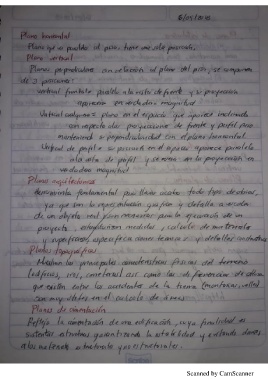 6/05/2020
Plano horizontal
Plano que es paralelo al piso, tiene una sola posición.
Plano vertical
Planos perpendiculares con relación al plano del piso, se componen
de 3 posiciones:
Vertical frontal: paralelo a la vista de frente y su proyección
aparecerá en verdadera magnitud
Vertical cualquiera: plano en el espacio que aparece inclinado
con respecto a las proyecciones de frente y perfil pero
manteniendo su perpendicularidad con el plano horizontal.
Vertical de perfil: se presenta en el espacio paralelo
a la vista de perfil y se verá en la proyección en
verdadera magnitud
Planos arquitectónicos
Herramienta fundamental para llevar a cabo todo tipo de obras,
ya que son la representación gráfica y detallada a escala
de un objeto real y son necesarios para la ejecución de un
proyecto, establecen medidas, calculo de materiales
y superficies, especifica como tecnicas y detalles constructivos
Planos topográficos
Muestra las principales características físicas del terreno
(edificios, ríos, carreteras) así como las diferencias de altura
que existen entre los accidentes de la tierra (montañas, valles)
son muy útiles en el calculo de áreas
Planos de cimentación
Refleja la cimentación de una edificación, cuya finalidad es
sustentar estructuras garantizando la estabilidad y evitando daños
a los materiales estructurales y no estructurales.
Scanned by CamScanner